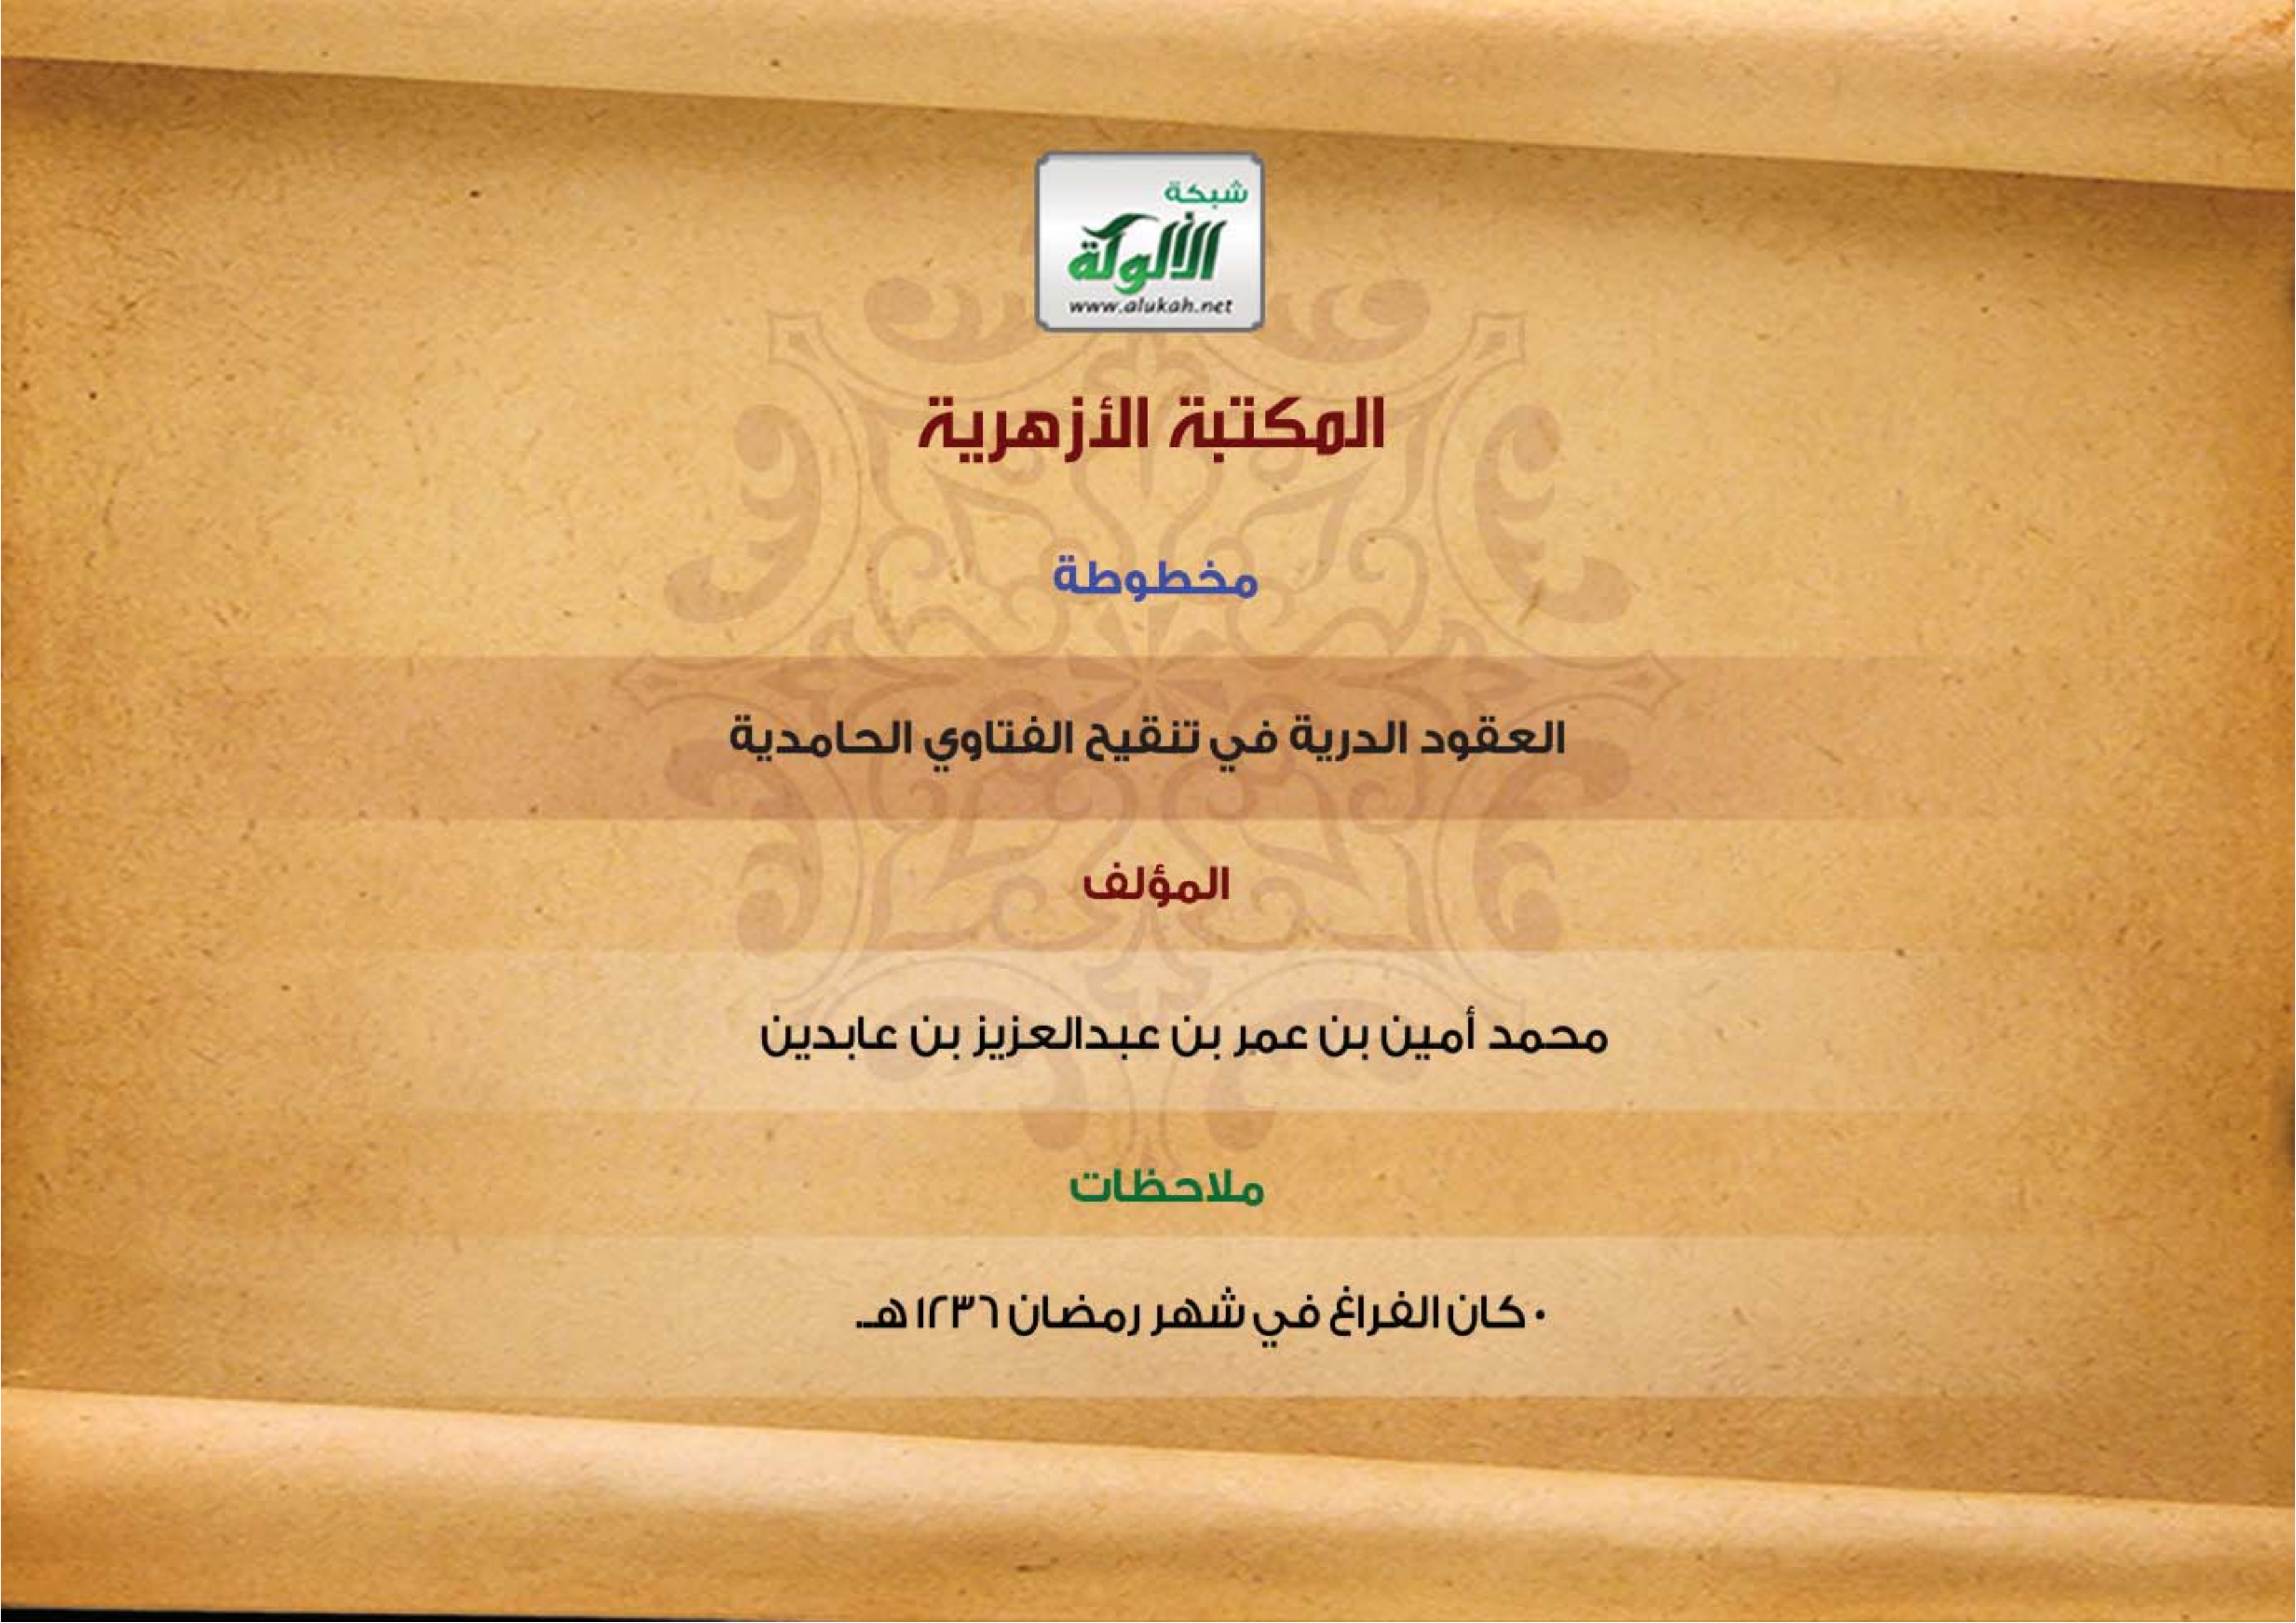 شبكة
الألوكة
www.alukah.net
المكتبة الأزهرية
مخطوطة
العقود الدرية في تنقيح الفتاوي الحامدية
المؤلف
محمد أمين بن عمر بن عبدالعزيز بن عابدين
ملاحظات
• كان الفراغ في شهر رمضان ١٢٣٦ هـ.